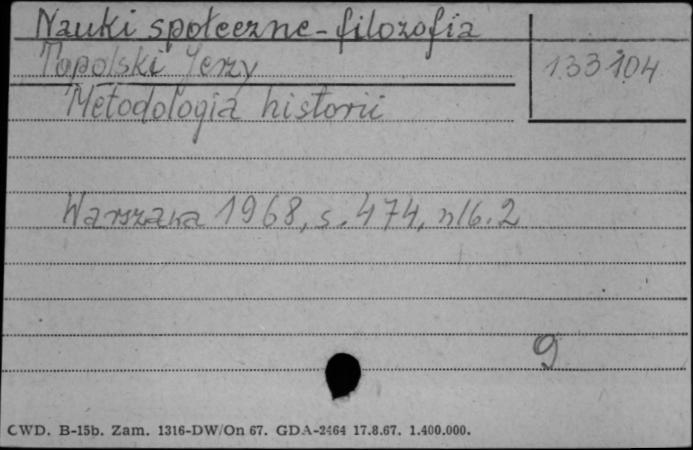 Nauki społeczne - filozofia
Topolski Jerzy
133 104
Metodologia historii
Warszawa 1968, s. 474, nlb. 2
9
CWD. B-15b. Zam. 1316-DW/On 67. GDA-2464 17.8.67. 1.400.000.